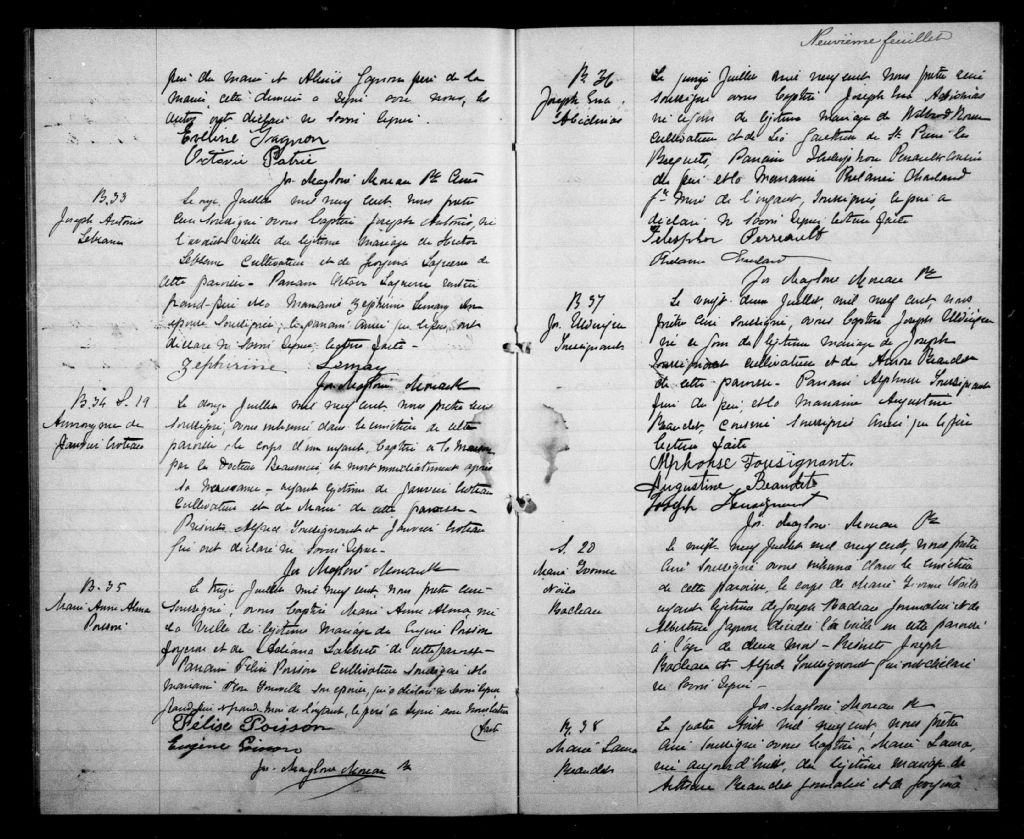 père du marié et Alexis Gagnon père de la
mariée, cette dernière a signé avec nous, les
autres ont déclaré ne savoir signer.
Eveline Gagnon
Octavie Patrie
Jos. Magloire Moreau Ptre Curé
B. 33
Joseph Antonio
Le onze Juillet mil neuf cent, nous prêtre
curé soussigné avons baptisé Joseph Antonio, né
l'avant veille du légitime mariage de Hector
cultivateur et de Georgina Laquerre de
cette paroisse - Parrain Laquerre
grand père et la Marraine Zéphirine Lemay son
épouse soussignée; le parrain ainsi que le père, ont
déclaré ne savoir signer, lecture faite -
Zéphirine Lemay
Jos Magloire Moreau Ptre
B. 34 S. 19
Annonyme de
Janvier Croteau
Le douze Juillet mil neuf cent nous prêtre curé
soussigné, avons inhumé dans le cimetière de cette
paroisse, le corps d'un enfant, baptisé à la maison
par le Docteur et mort immédiatement après
sa naissance - enfant légitime de Janvier Croteau
cultivateur et de Marie de cette paroisse -
Présents Alfred Tousignant et Janvier Croteau
qui ont déclaré ne savoir signer -
Jos Magloire Moreau Ptre
B. 35
Marie Anne Alma
Poisson
Le treize Juillet mil neuf cent nous prêtre curé
soussigné avons baptisé Marie Anne Alma, née
la veille du légitime mariage de Eugène Poisson
et de Adriana de cette paroisse -
Parrain Félix Poisson cultivateur soussigné et la
marraine son épouse, qui a déclaré ne savoir signer,
grand père et grand mère de l'enfant, le père a signé avec nous lecture
faite
Félise Poisson
Eugène Poisson
Jos. Magloire Moreau Ptre
Neuvième feuillet
B. 36
Joseph
Le Juillet mil neuf cent nous prêtre curé
soussigné avons baptisé Joseph
né ce jour du légitime mariage de
cultivateur et de Gaudreau de St. Pierre les
Becquets, Parrain Télesphore Perreault cousin
du père et la Marraine
de l'enfant, soussignés, le père a
déclaré ne savoir signer lecture faite
Telesphor Perreault
Jos Magloire Moreau Ptre
B 37
Jos. Ulderique
Tousignant
Le vingt deux Juillet mil neuf cent nous
prêtre curé soussigné, avons baptisé Joseph Ulderique
né ce jour du légitime mariage de Joseph
Tousignant cultivateur et de Aurore Beaudet
de cette paroisse - Parrain Alphonse Tousignant
frère du père et la Marraine Augustine
Beaudet, cousine soussignés ainsi que le père
lecture faite
Alphonse Tousignant.
Augustine Beaudet
Joseph Tousignant
Jos. Magloire Moreau Ptre
S. 20
Marie Yvonne
Noëlla
Le vingt neuf Juillet mil neuf cent, nous prêtre
curé soussigné avons inhumé dans le cimetière
de cette paroisse, le corps de Marie Yvonne Noëlla
enfant légitime de Joseph journalier et de
Albertine Gagnon décédée la veille en cette paroisse
à l'âge de deux mois - Présents Joseph
et Alfred Tousignant qui ont déclaré
ne savoir signer -
Jos. Magloire Moreau Ptre
B. 38
Marie Laura
Beaudet
Le quatre Août mil neuf cent, nous prêtre
curé soussigné avons baptisé, Marie Laura,
née aujourd'hui, du légitime mariage de
Beaudet journalier et de Georgina